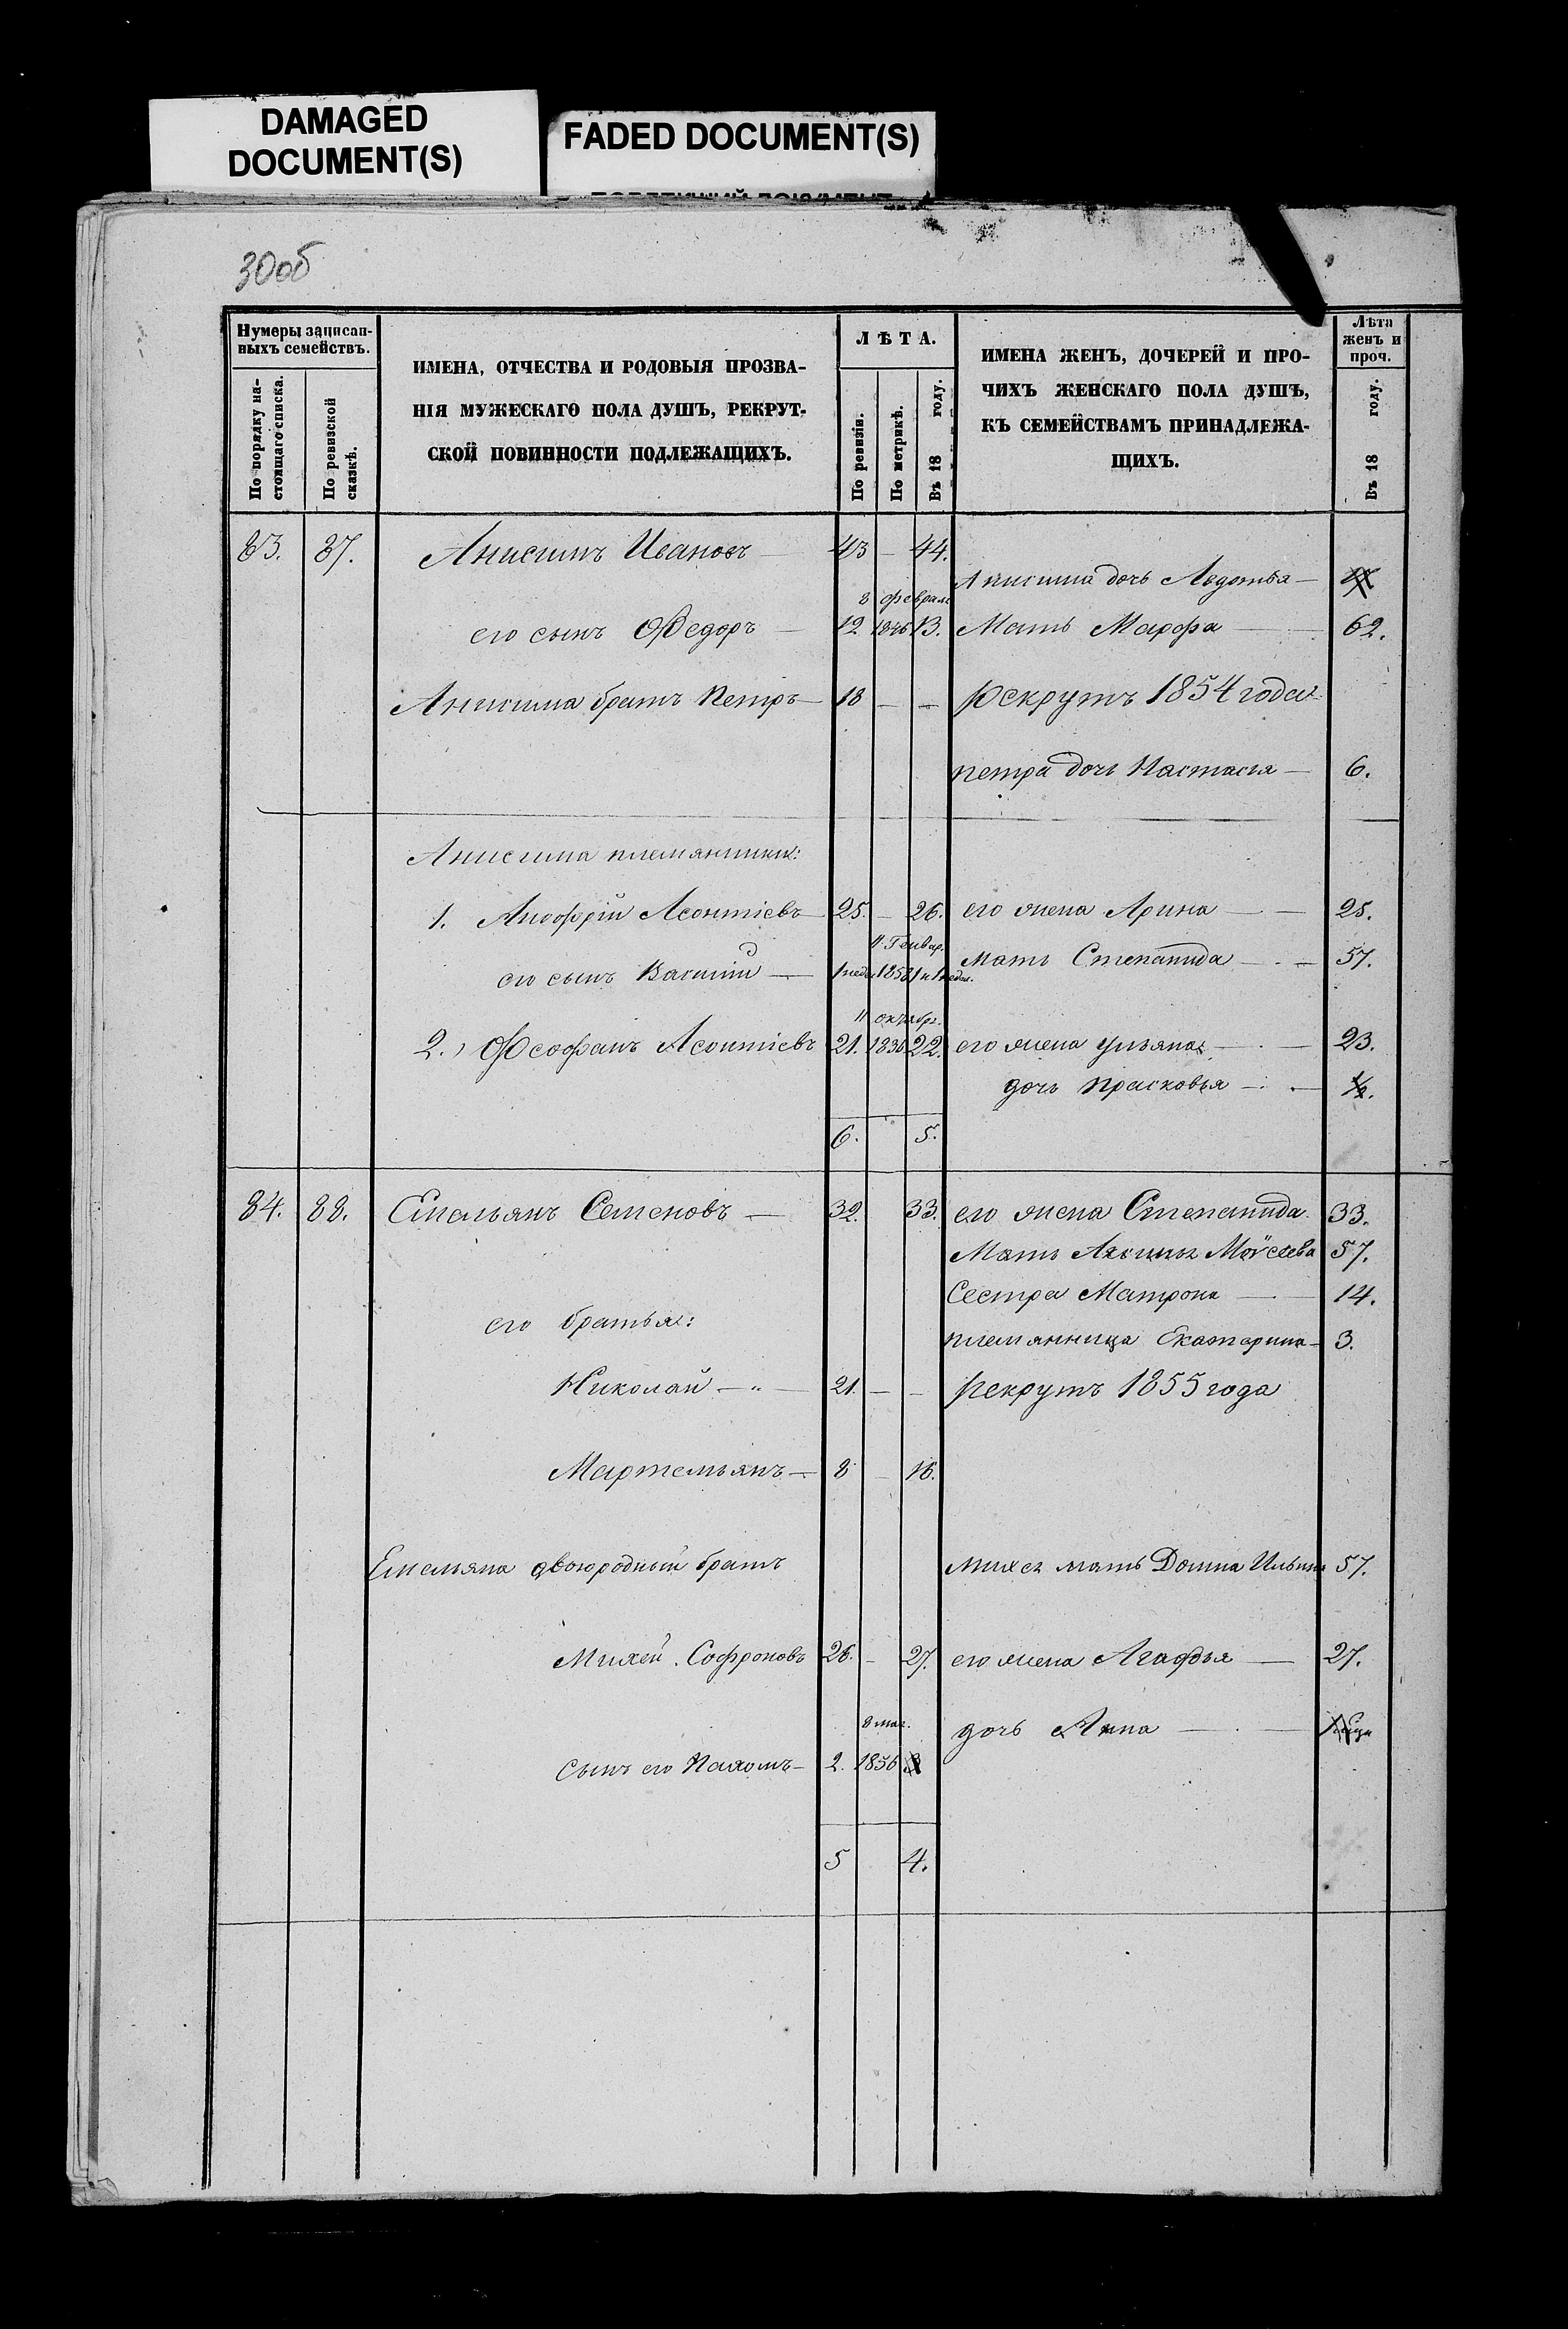 DAMAGED
DOCUMENT(S)
FADED DOCUMENT(S)
30об
Нумеры записан-
ныхъ семействъ.
По порядку на-
стоящаго списка.
По ревизской
сказкѣ.
ИМЕНА, ОТЧЕСТВА И РОДОВЫЯ ПРОЗВА-
НІЯ МУЖЕСКАГО ПОЛА ДУШЪ, РЕКРУТ-
СКОЙ ПОВИННОСТИ ПОДЛЕЖАЩИХЪ.
ЛѢТА.
По ревизіи.
По метрикѣ.
Въ 18 году.
ИМЕНА ЖЕНЪ, ДОЧЕРЕЙ И ПРО-
ЧИХЪ ЖЕНСКАГО ПОЛА ДУШЪ,
КЪ СЕМЕЙСТВАМЪ ПРИНАДЛЕЖА-
ЩИХЪ.
Лѣта
женъ и
проч.
Въ 18 году.
83. 87. Анисимъ Ивановъ — 43 — 44.
Анисима дочь Авдотья —
8 февраля
его сынъ Ѳедоръ — 12 1846 13. Мать Марфа — 62.
Анисима братъ Петръ — 18 — — рекрутъ 1854 года
петра дочь Настасья — 6.
Анисима племянники:
1. Анофрій Леонтіевъ 25. — 26. его жена Арина — 25.
11 Генвар.
его сынъ Василій — 1 неде. 1858 1 и 1 недел. мать Степанида — 57.
11 октябр.
2. Ѳеофанъ Леонтіевъ 21. 1836 22. его жена Ульяна — 23.
дочь Прасковья — ½.
6. 5.
84. 88. Емельянъ Семеновъ — 32. 33. его жена Степанида 33.
Мать Аксинья Моисеева 57.
Сестра Матрона — 14.
его братья:
племянница Екатерина — 3.
Николай — " — 21. — — рекрутъ 1855 года
Мартемьянъ — 8 — 16.
Емельяна двоюродный братъ Михея мать Домна Ильина 57.
Михей Софроновъ 26. — 27. его жена Агафья — 27.
8 мая.
дочь Анна —
сынъ его Пахомъ — 2. 1856 3
5 4.